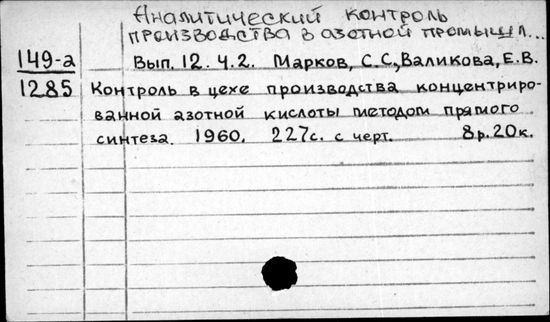 Аналитический контроль
производства в азотной промышл...
149-а Вып. 12. Ч. 2. Марков, С.С., Валикова, Е.В.
1285 Контроль в цехе производства концентриро-
ванной азотной кислоты методом прямого
синтеза. 1960. 227с. с черт. 8р.20к.